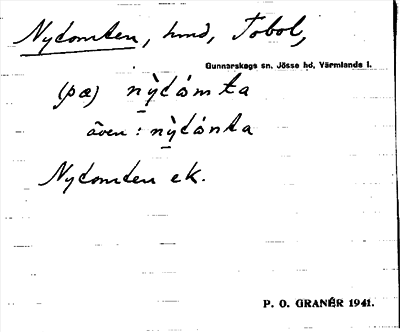 Nytomten, hmd, Tobol,
Gunnarskogs sn. Jösse hd, Värmlands l.
(pæ) nỳtómta
även: nỳtónta
Nytomten ek.
P. O. GRANÉR 1941.